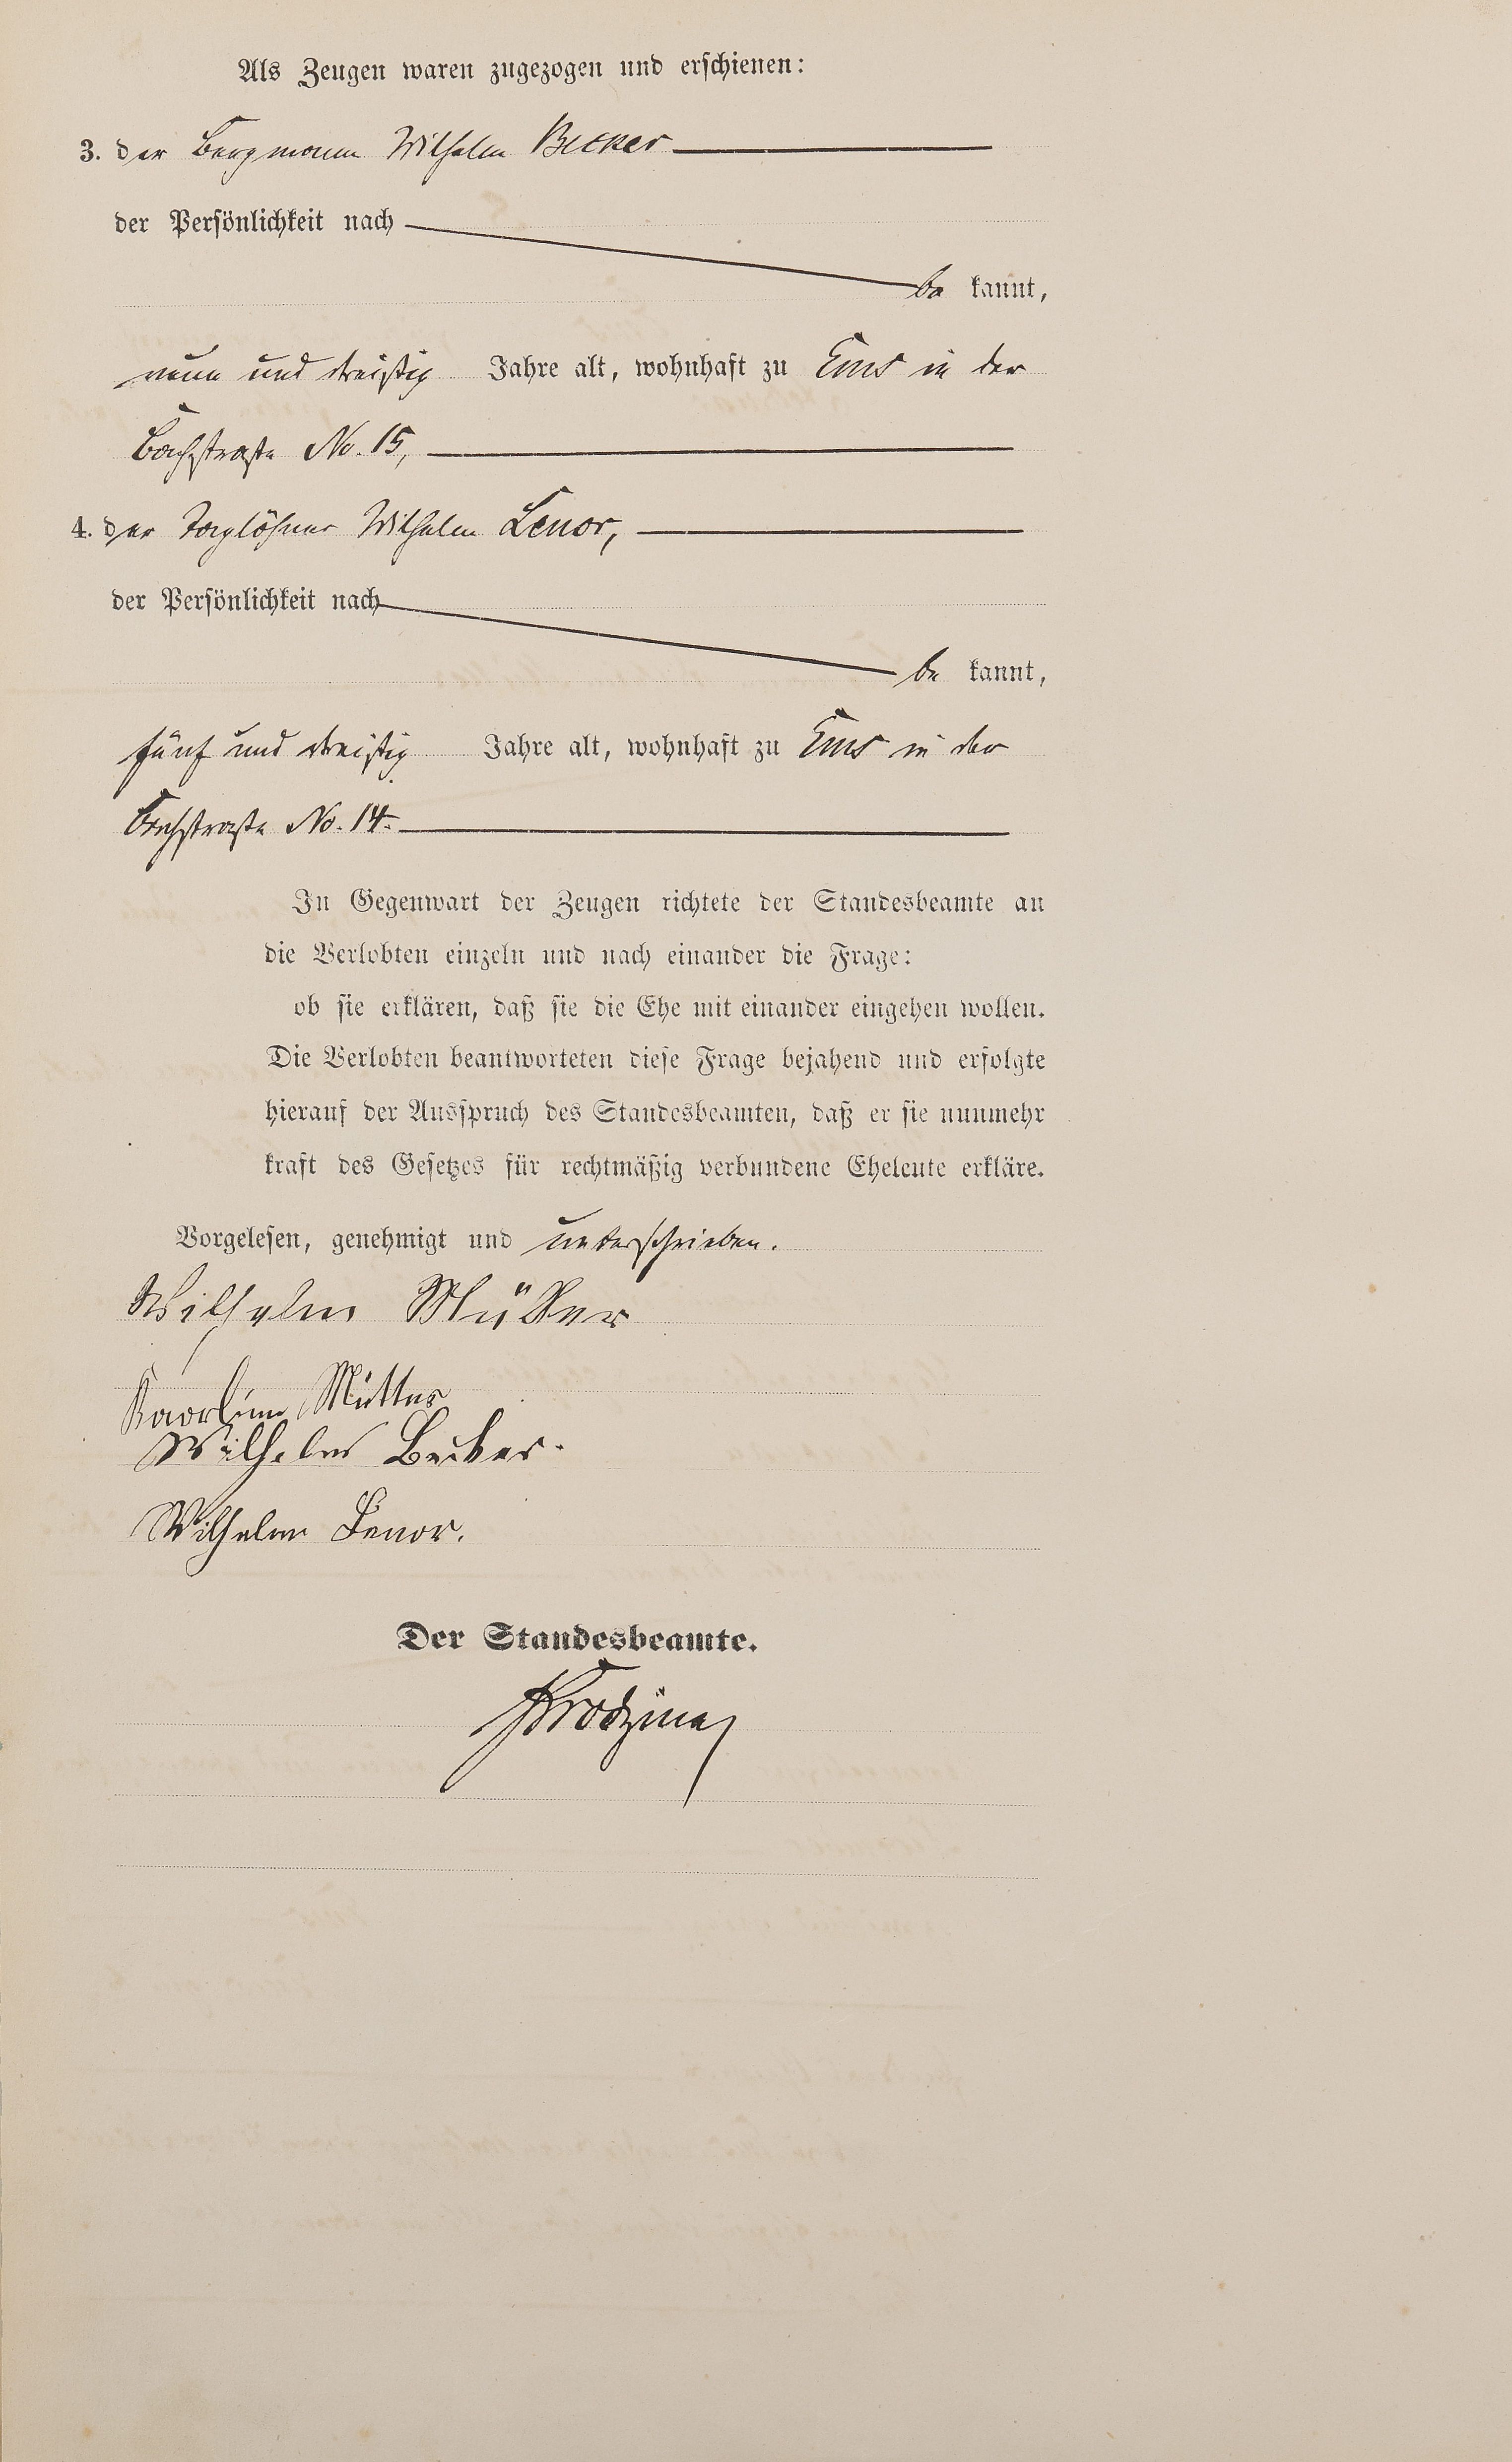 Als Zeugen waren zugezogen und erschienen:
3. der Bergmann Wilhelm Becker
der Persönlichkeit nach
be kannt,
neun und dreißig Jahre alt, wohnhaft zu Ems in der
Bachstraße No. 15,
4. der Taglöhner Wilhelm Lenor,
der Persönlichkeit nach
be kannt,
fünf und dreißig Jahre alt, wohnhaft zu Ems in der
Bachstraße No. 14.
In Gegenwart der Zeugen richtete der Standesbeamte an
die Verlobten einzeln und nach einander die Frage:
ob sie erklären, daß sie die Ehe mit einander eingehen wollen.
Die Verlobten beantworteten diese Frage bejahend und erfolgte
hierauf der Ausspruch des Standesbeamten, daß er sie nunmehr
kraft des Gesetzes für rechtmäßig verbundene Eheleute erkläre.
Vorgelesen, genehmigt und unterschrieben.
Wilhelm Müller
Wilhelm Becker.
Wilhelm Lenor.
Der Standesbeamte.